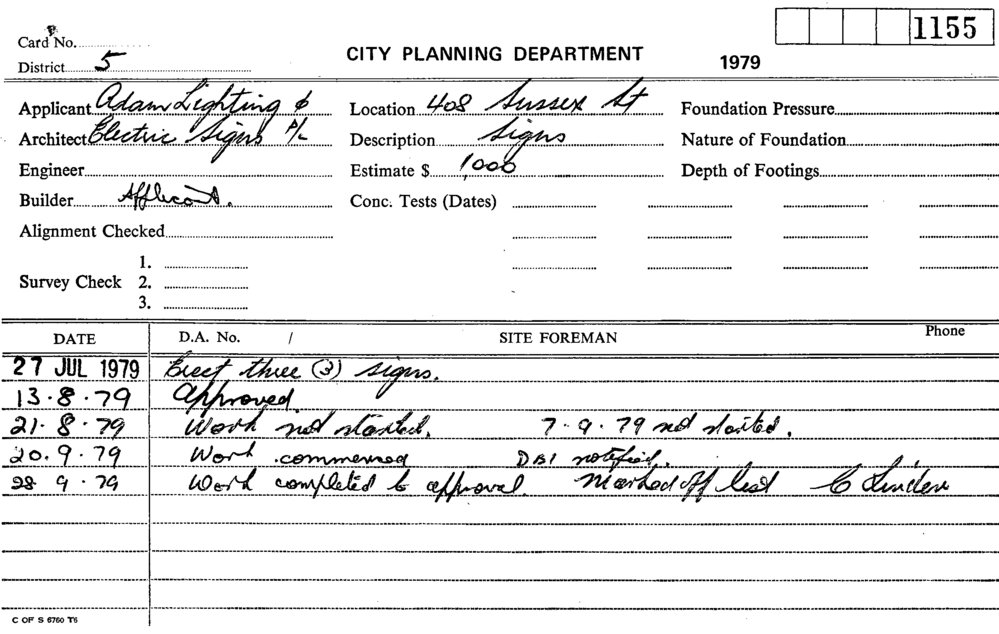 1155
Card No.
CITY PLANNING DEPARTMENT 1979
District 5
Applicant Adam Lighting & Location 408 Sussex St Foundation Pressure
Architect Electric Signs P/L Description Signs Nature of Foundation
Engineer Estimate $ 1,000 Depth of Footings
Builder Applicant. Conc. Tests (Dates)
Alignment Checked
1.
Survey Check 2.
3.
DATE D.A. No. / SITE FOREMAN Phone
27 JUL 1979 Erect three (3) signs.
13.8.79 Approved.
21.8.79 Work not started. 7.9.79 not started.
20.9.79 Work commenced DBI notified.
28.9.79 Work completed to approval. Marked off list C Linden
C OF S 6760 T6